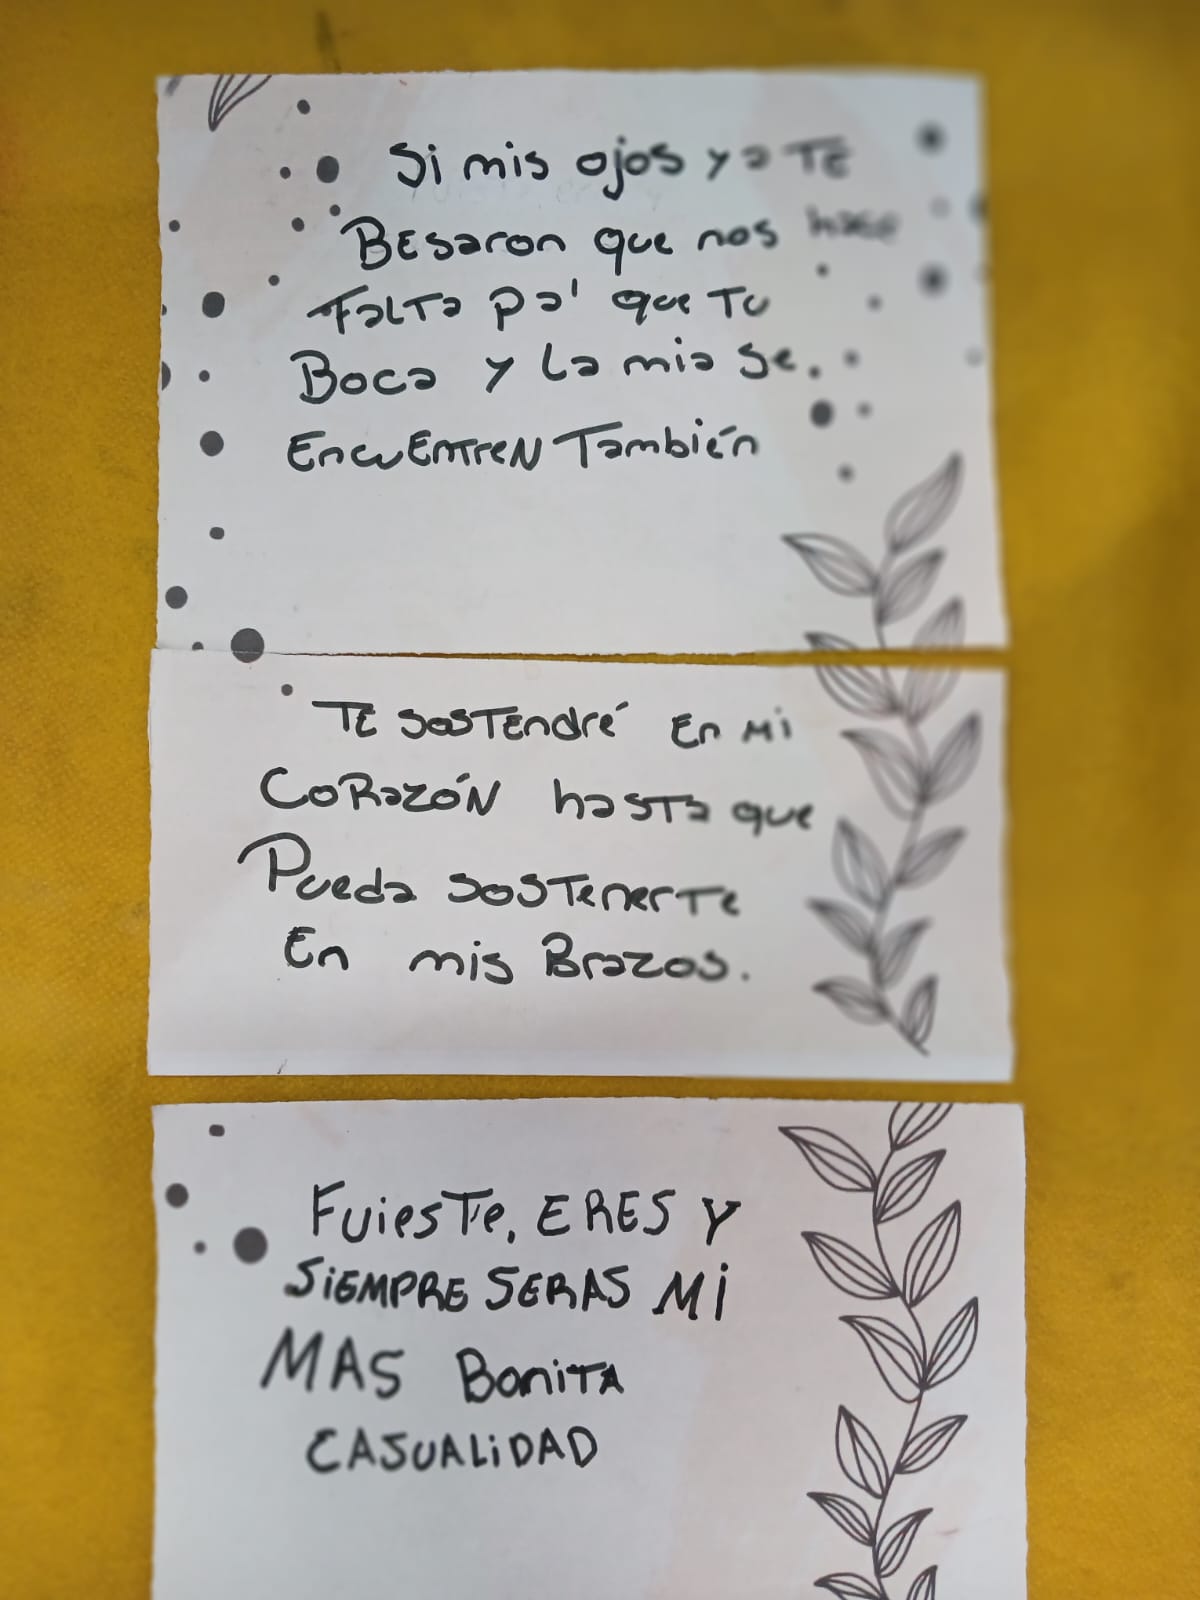 Si mis ojos ya TE
BESaron que nos hace
FalTa pa' que Tu
Boca y La mia Se.
EncuEnTreN También
TE SOSTEndré En Mi
CoRazÓN haSTa que
Pueda SOSTenerTe
En mis Brazos.
FuiesTe, ERES Y
SiEMPRE SERAS Mi
MAS BoniTA
CASUALiDAD